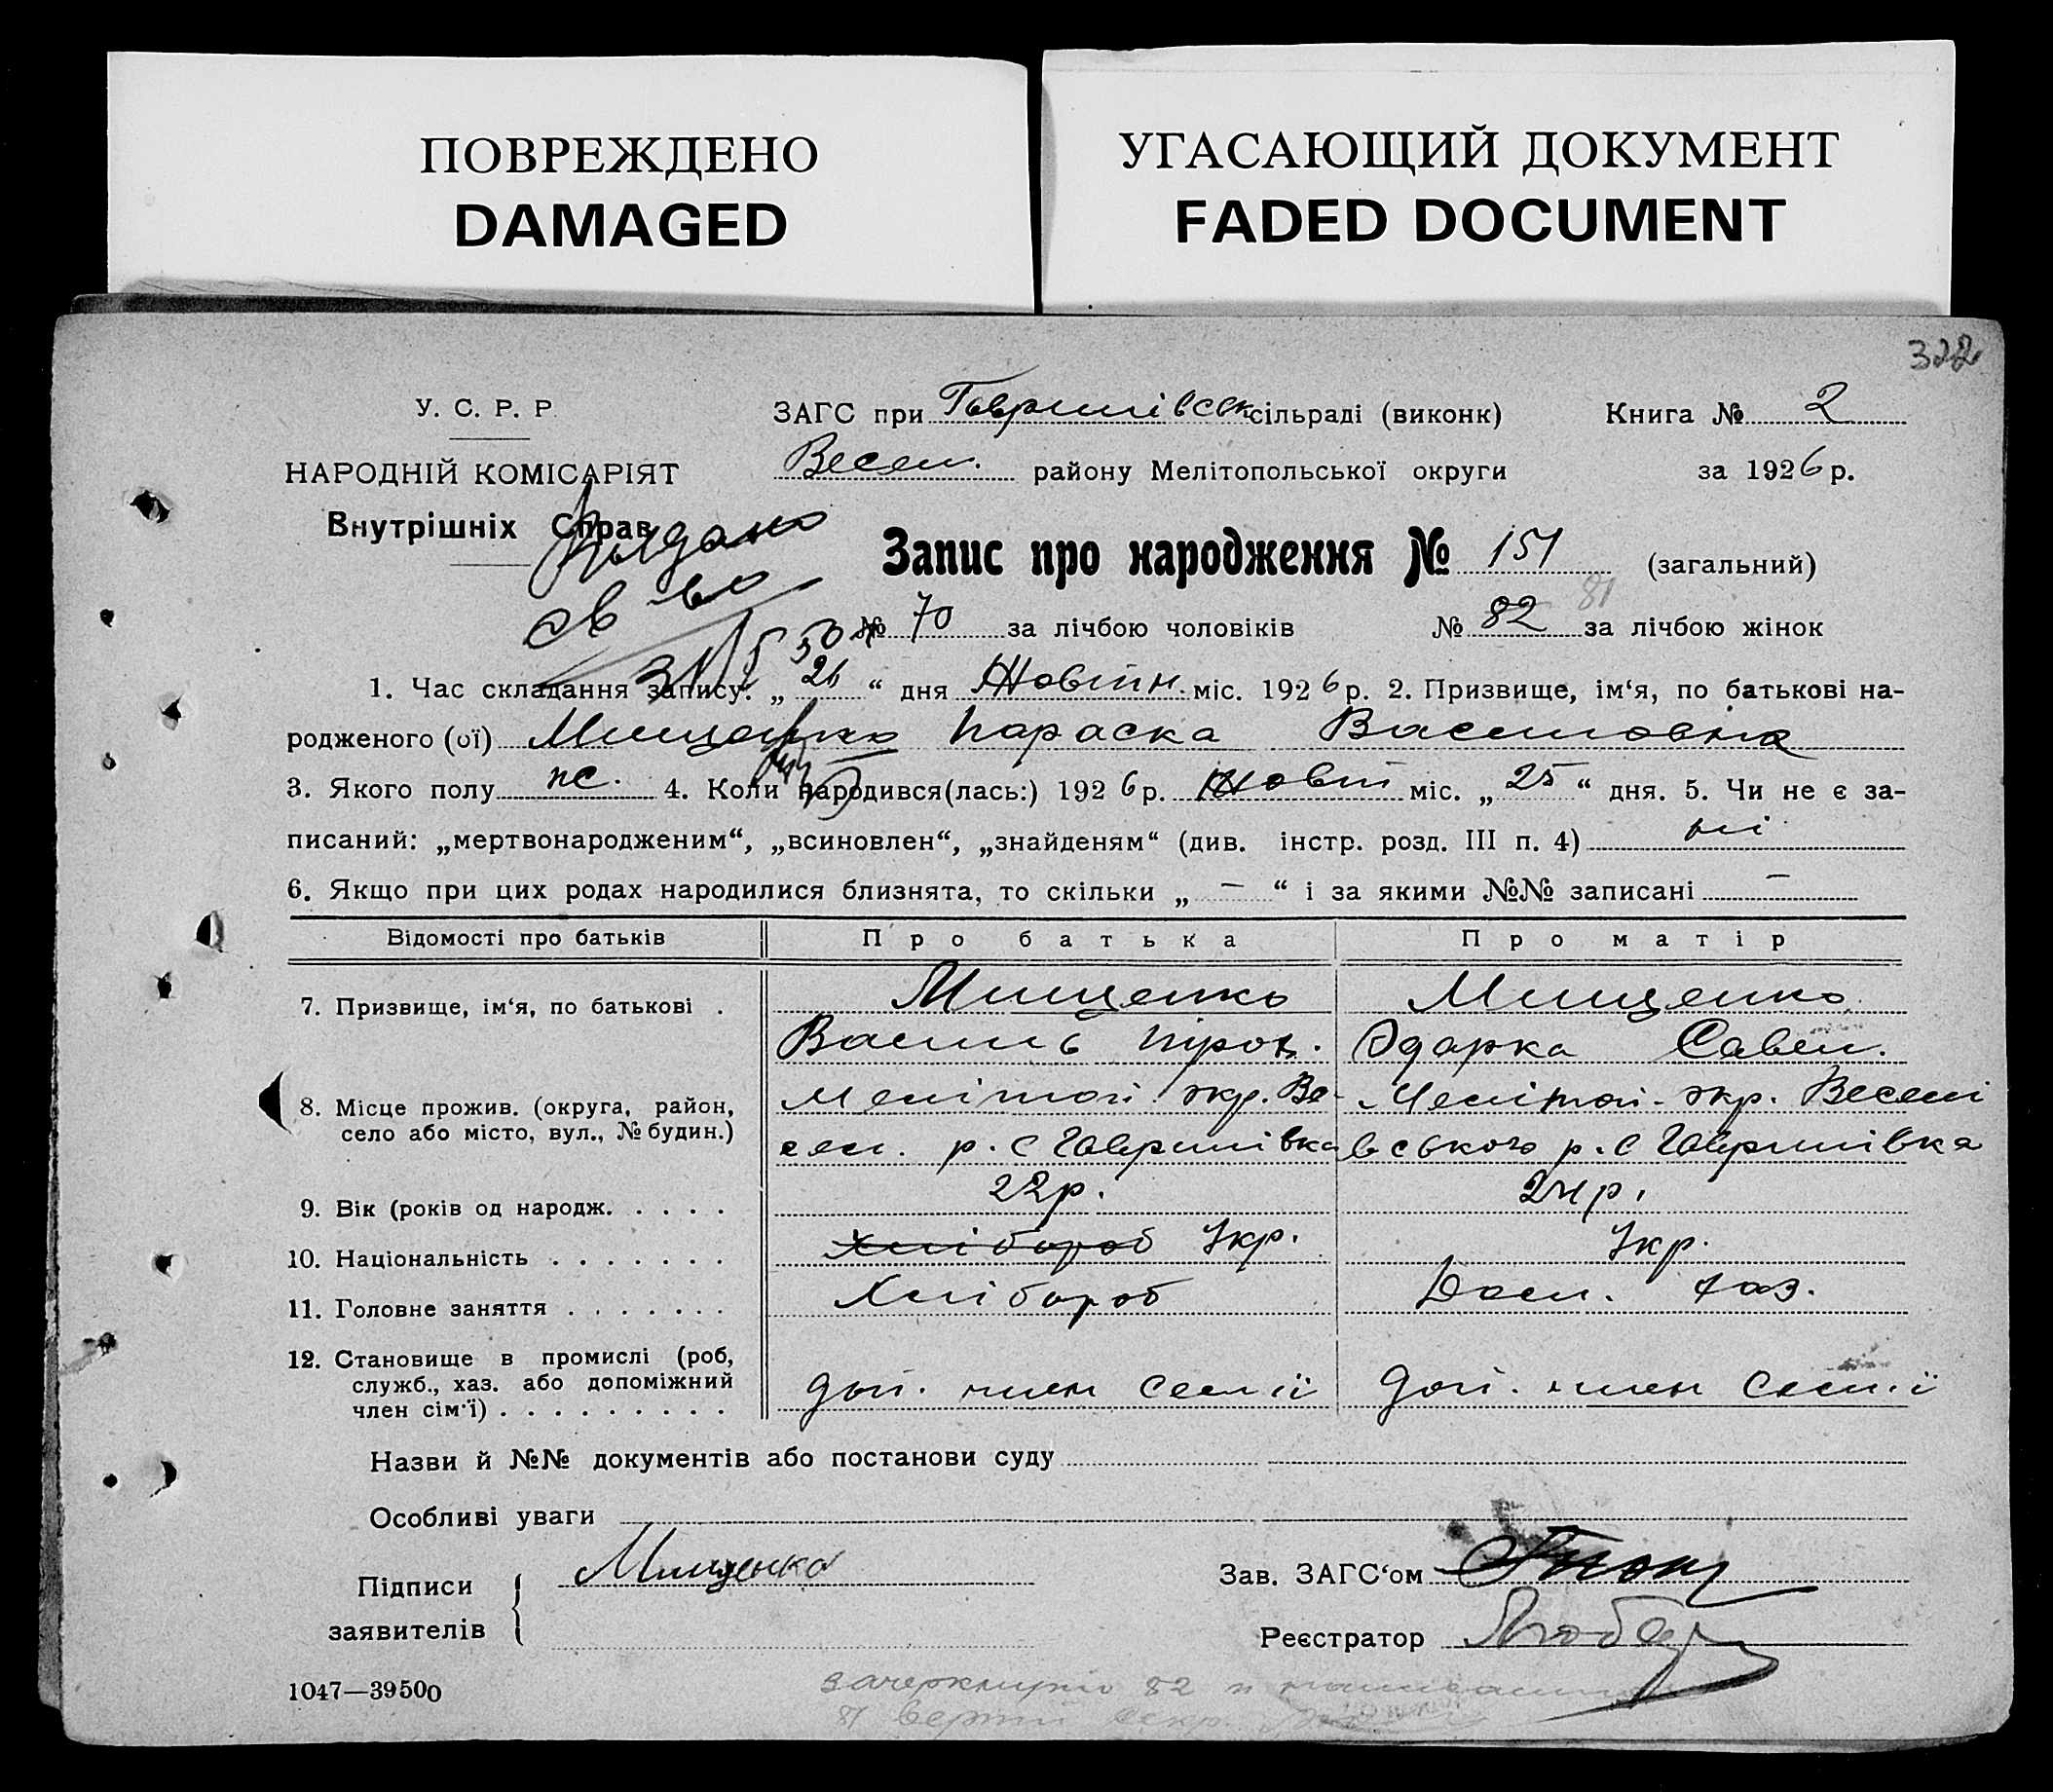 ПОВРЕЖДЕНО
DAMAGED
УГАСАЮЩИЙ ДОКУМЕНТ
FADED DOCUMENT
322
У. С. Р. Р.
НАРОДНІЙ КОМІСАРІЯТ
Внутрішніх Справ
Видано
св во
31/5 50
ЗАГС при Гаврилівськ сільраді (виконк)
Весел. району Мелітопольської округи
Книга № 2
за 1926 р.
Запис про народження № 151 (загальний)
№ 70 за лічбою чоловіків № 82 81 за лічбою жінок
1. Час складання запису: „ 26 “ дня Жовтн. міс. 1926 р. 2. Призвище, ім‘я, по батькові на-
родженого (ої) Мищенко Параска Василовна
3. Якого полу жс. 4. Коли народився(лась:) 1926 р. Жовт міс. „ 25 “ дня. 5. Чи не є за-
писаний: „мертвонародженим“, „всиновлен“, „знайденям“ (див. інстр. розд. III п. 4) ні
6. Якщо при цих родах народилися близнята, то скільки „ — “ і за якими №№ записані —
Відомості про батьків Про батька Про матір
7. Призвище, ім‘я, по батькові . Мищенко Мищенко
Василь Одарка Савел.
8. Місце прожив. (округа, район, село або місто, вул., № будин.) Мелітоп. окр. Ве- Мелітоп. окр. Веселі
сел. р. с Гаврилівка вського р. с Гаврилівка
9. Вік (років од народж. . . . . 22р. 24р.
10. Національність . . . . . . . Хлібороб Укр. Укр.
11. Головне заняття . . . . . . . Хлібороб Дом. хаз.
12. Становище в промислі (роб,
служб., хаз. або допоміжний
член сім‘ї) . . . . . . . . . доп. член семії доп. член семії
Назви й №№ документів або постанови суду
Особливі уваги
Підписи заявителів Мищенко
Зав. ЗАГС‘ом
Реєстратор
1047—39500
зачеркнуто 82 и написано
81